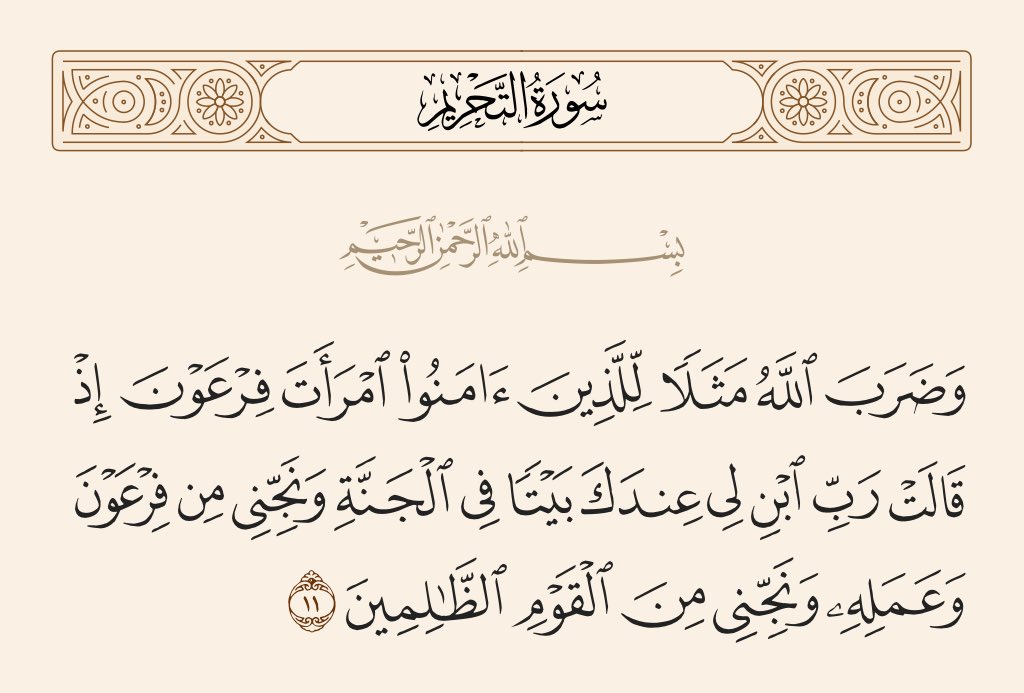 سُورَةُ التَّحْرِيمِ
بِسْمِ ٱللَّهِ ٱلرَّحْمَٰنِ ٱلرَّحِيمِ
وَضَرَبَ ٱللَّهُ مَثَلًا لِّلَّذِينَ ءَامَنُوا۟ ٱمْرَأَتَ فِرْعَوْنَ إِذْ
قَالَتْ رَبِّ ٱبْنِ لِى عِندَكَ بَيْتًا فِى ٱلْجَنَّةِ وَنَجِّنِى مِن فِرْعَوْنَ
وَعَمَلِهِۦ وَنَجِّنِى مِنَ ٱلْقَوْمِ ٱلظَّٰلِمِينَ ١١